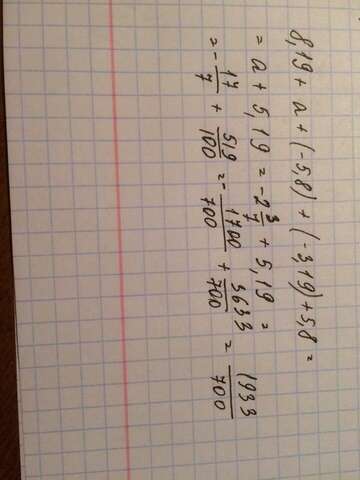 8,19 + a + (-5,8) + (-3,19) + 5,8 =
= a + 5,19 = -2 3/7 + 5,19 =
= - 17/7 + 519/100 = - 1700/700 + 3633/700 = 1933/700